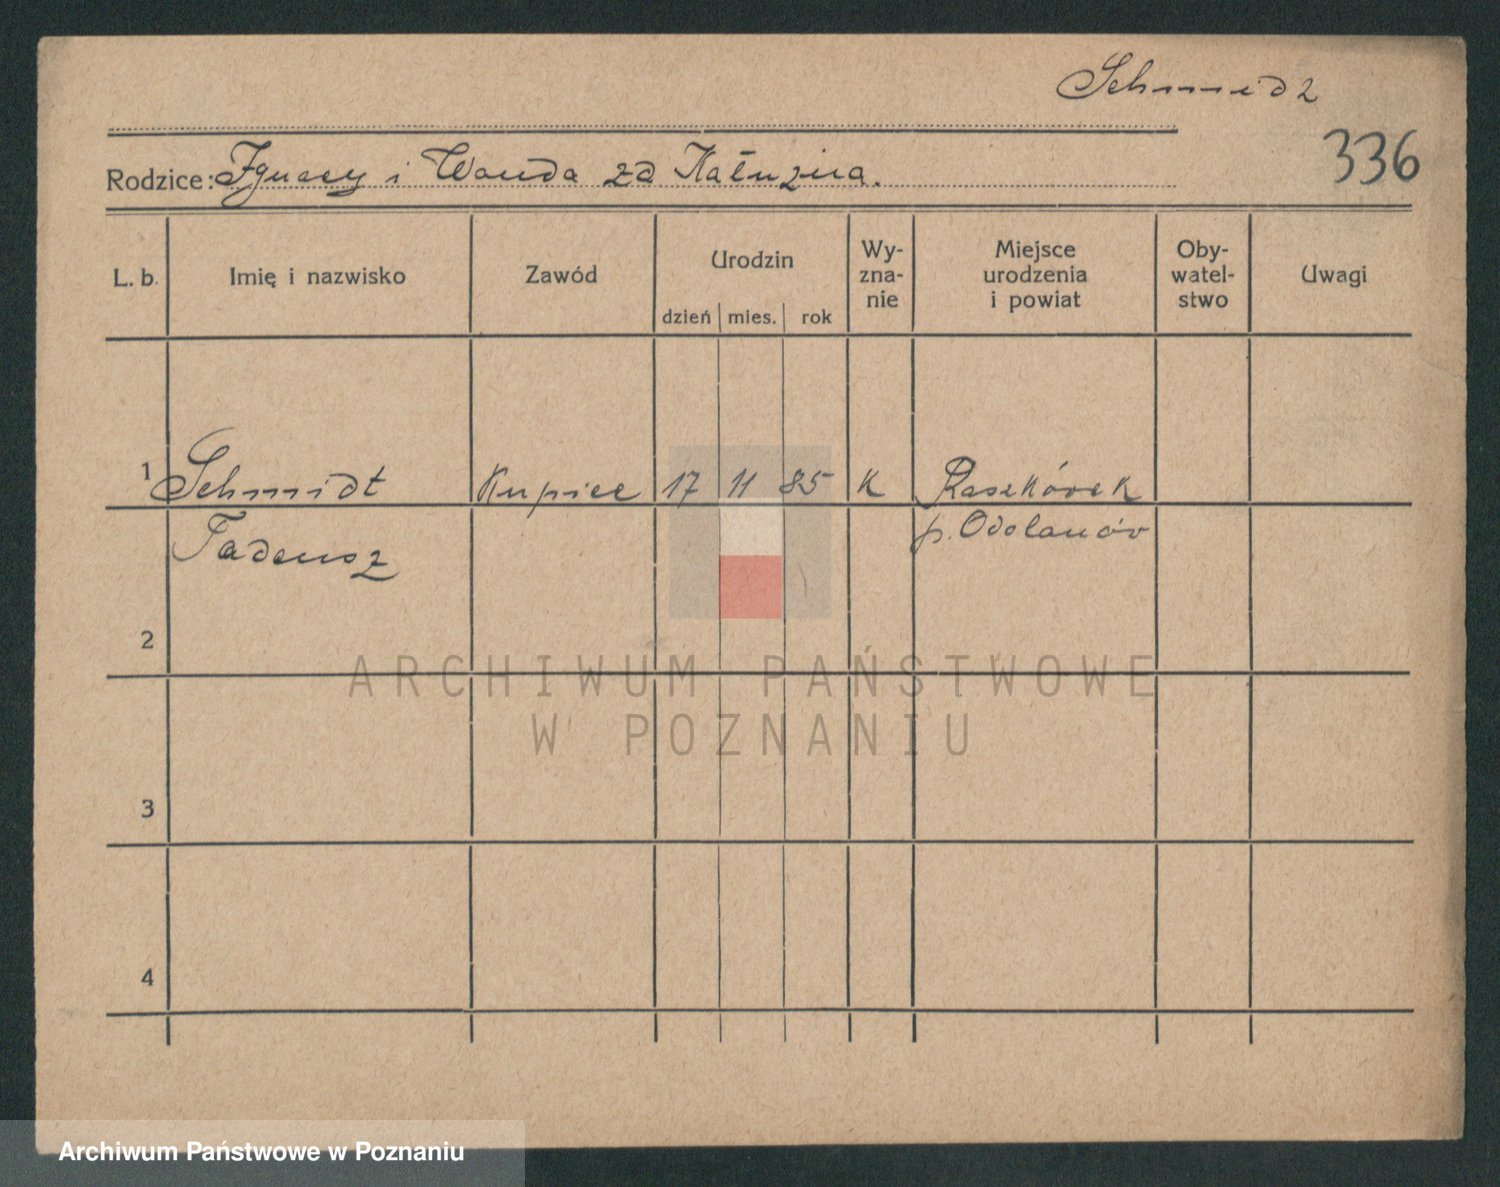 Schmidt
336
Rodzice: Ignacy i Wanda zd Kałużna.
L. b. Imię i nazwisko Zawód Urodzin Wy- Miejsce Oby- Uwagi
zna- urodzenia watel-
nie i powiat stwo
dzień mies. rok
1 Schmidt Kupiec 17 11 85 K Raszkówek
Tadeusz p. Odolanów
2
ARCHIWUM PAŃSTWOWE
W POZNANIU
3
4
Archiwum Państwowe w Poznaniu